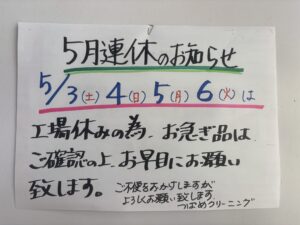 5月連休のお知らせ
5/3(土)4(日)5(月)6(火)は
工場休みの為、お急ぎ品は
ご確認の上、お早目にお願い
致します。
ご不便をおかけしますが
よろしくお願い致します
つばめクリーニング